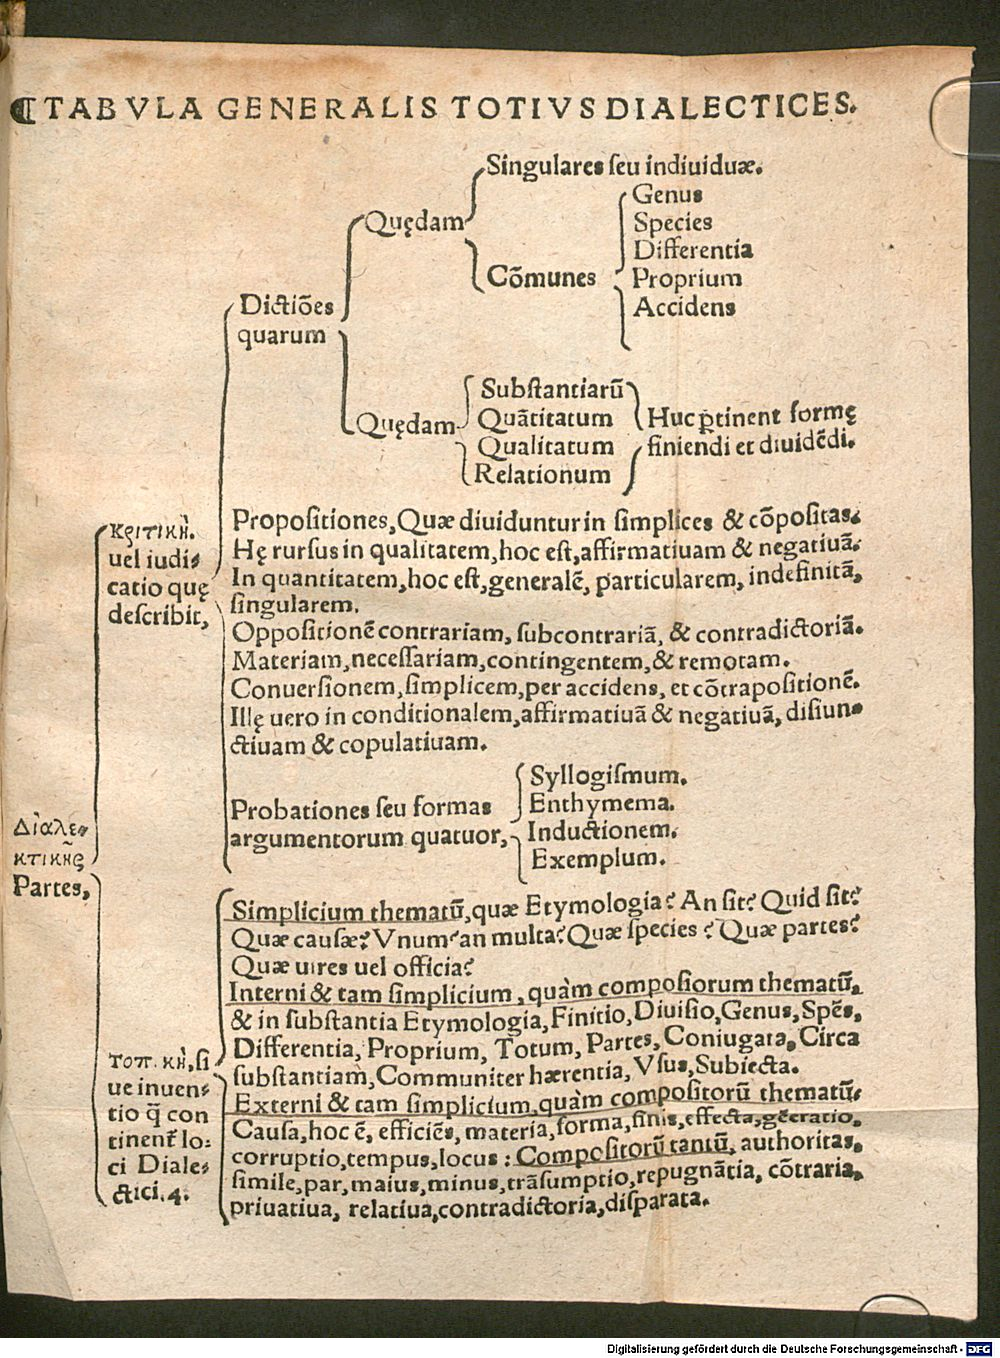 ¶TABVLA GENERALIS TOTIVS DIALECTICES.
Singulares ſeu indiuiduæ.
Genus
Quędam
Species
Differentia
Cõmunes
Proprium
Accidens
Dictiões
quarum
Subſtantiarũ
Quãtitatum
Quędam
Huc ꝑtinent formę
Qualitatum
finiendi et diuidẽdi.
Relationum
Κριτικὴ.
uel iudi⸗
catio quę
deſcribit,
Propoſitiones, Quæ diuiduntur in ſimplices & cõpoſitas.
Hę rurſus in qualitatem, hoc eſt, affirmatiuam & negatiuã.
In quantitatem, hoc eſt, generalẽ, particularem, indefinitã,
ſingularem.
Oppoſitionẽ contrariam, ſubcontrariã, & contradictoriã.
Materiam, neceſſariam, contingentem, & remotam.
Conuerſionem, ſimplicem, per accidens, et cõtrapoſitionẽ.
Illę uero in conditionalem, affirmatiuã & negatiuã, diſiun⸗
ctiuam & copulatiuam.
Syllogiſmum.
Probationes ſeu formas
Enthymema.
argumentorum quatuor,
Inductionem.
Exemplum.
Διαλε⸗
κτικῆς
Partes,
Simplicium thematũ, quæ Etymologia? An ſit? Quid ſit?
Quæ cauſæ? Vnum an multa? Quæ ſpecies? Quæ partes?
Quæ uires uel officia?
Interni & tam ſimplicium, quàm compoſiorum thematũ,
& in ſubſtantia Etymologia, Finitio, Diuiſio, Genus, Spẽs,
Differentia, Proprium, Totum, Partes, Coniugata. Circa
ſubſtantiam, Communiter hærentia, Vſus, Subiecta.
Externi & tam ſimplicium, quàm compoſitorũ thematũ.
Cauſa, hoc ẽ, efficiẽs, materia, forma, finis, effecta, gẽeratio,
corruptio, tempus, locus: Compoſitorũ tantũ, authoritas,
ſimile, par, maius, minus, trãſumptio, repugnãtia, cõtraria,
priuatiua, relatiua, contradictoria, diſparata.
τοπ.κὴ, ſi
ue inuen⸗
tio q̃ con
tinent̃ lo:
ci Diale⸗
ctici. 4.
Digitalisierung gefördert durch die Deutsche Forschungsgemeinschaft - DFG